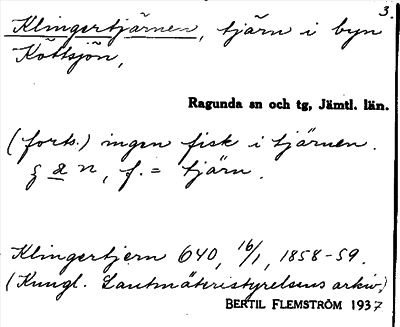 3.
Klingertjärnen, tjärn i byn
Köttsjön,
Ragunda sn och tg, Jämtl. län.
(forts.) ingen fisk i tjärnen.
f. = tjärn.
Klingertjern 640, 16/1, 1858-59.
(Kungl. Lantmäteristyrelsens arkiv.)
BERTIL FLEMSTRÖM 1937